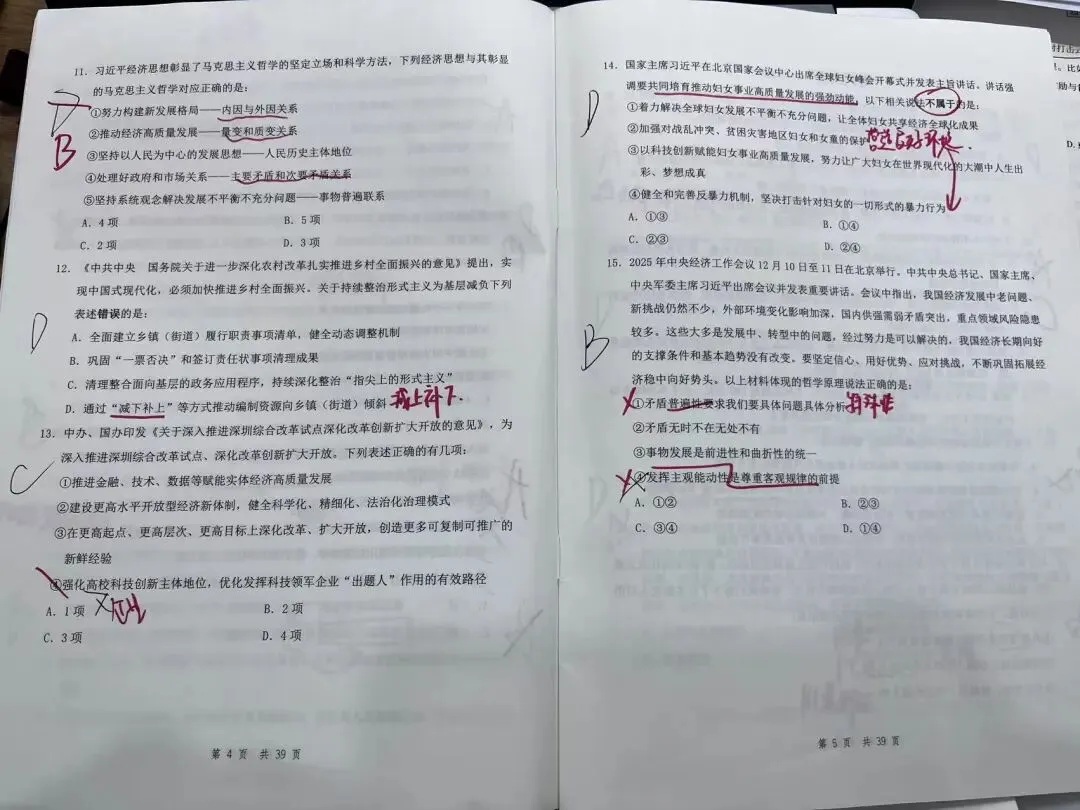 11. 习近平经济思想彰显了马克思主义哲学的坚定立场和科学方法，下列经济思想与其彰显
的马克思主义哲学对应正确的是：
①努力构建新发展格局——内因与外因关系
②推动经济高质量发展——量变和质变关系
B
③坚持以人民为中心的发展思想——人民历史主体地位
④处理好政府和市场关系——主要矛盾和次要矛盾关系
⑤坚持系统观念解决发展不平衡不充分问题——事物普遍联系
A. 4 项 B. 5 项
C. 2 项 D. 3 项
12. 《中共中央 国务院关于进一步深化农村改革扎实推进乡村全面振兴的意见》提出，实
现中国式现代化，必须加快推进乡村全面振兴。关于持续整治形式主义为基层减负下列
表述错误的是：
D
A. 全面建立乡镇（街道）履行职责事项清单，健全动态调整机制
B. 巩固“一票否决”和签订责任状事项清理成果
C. 清理整合面向基层的政务应用程序，持续深化整治“指尖上的形式主义”
D. 通过“减下补上”等方式推动编制资源向乡镇（街道）倾斜 减上补下.
13. 中办、国办印发《关于深入推进深圳综合改革试点深化改革创新扩大开放的意见》，为
深入推进深圳综合改革试点、深化改革创新扩大开放。下列表述正确的有几项：
C
①推进金融、技术、数据等赋能实体经济高质量发展
②建设更高水平开放型经济新体制，健全科学化、精细化、法治化治理模式
③在更高起点、更高层次、更高目标上深化改革、扩大开放，创造更多可复制可推广的
新鲜经验
④强化高校科技创新主体地位，优化发挥科技领军企业“出题人”作用的有效路径
A. 1 项 B. 2 项
C. 3 项 D. 4 项
第 4 页 共 39 页
14. 国家主席习近平在北京国家会议中心出席全球妇女峰会开幕式并发表主旨讲话。讲话强
调要共同培育推动妇女事业高质量发展的强劲动能，以下相关说法不属于的是：
D
①着力解决全球妇女发展不平衡不充分问题，让全体妇女共享经济全球化成果
②加强对战乱冲突、贫困灾害地区妇女和女童的保护
③以科技创新赋能妇女事业高质量发展，努力让广大妇女在世界现代化的大潮中人生出
彩、梦想成真
④健全和完善反暴力机制，坚决打击针对妇女的一切形式的暴力行为
A. ①③ B. ①④
C. ②③ D. ②④
15. 2025 年中央经济工作会议 12 月 10 日至 11 日在北京举行。中共中央总书记、国家主席、
中央军委主席习近平出席会议并发表重要讲话。会议中指出，我国经济发展中老问题、
新挑战仍然不少，外部环境变化影响加深，国内供强需弱矛盾突出，重点领域风险隐患
较多。这些大多是发展中、转型中的问题，经过努力是可以解决的，我国经济长期向好
B
的支撑条件和基本趋势没有改变。要坚定信心、用好优势、应对挑战，不断巩固拓展经
济稳中向好势头。以上材料体现的哲学原理说法正确的是：
①矛盾普遍性要求我们要具体问题具体分析 特殊性
②矛盾无时不在无处不有
③事物发展是前进性和曲折性的统一
④发挥主观能动性是尊重客观规律的前提
A. ①② B. ②③
C. ③④ D. ①④
第 5 页 共 39 页